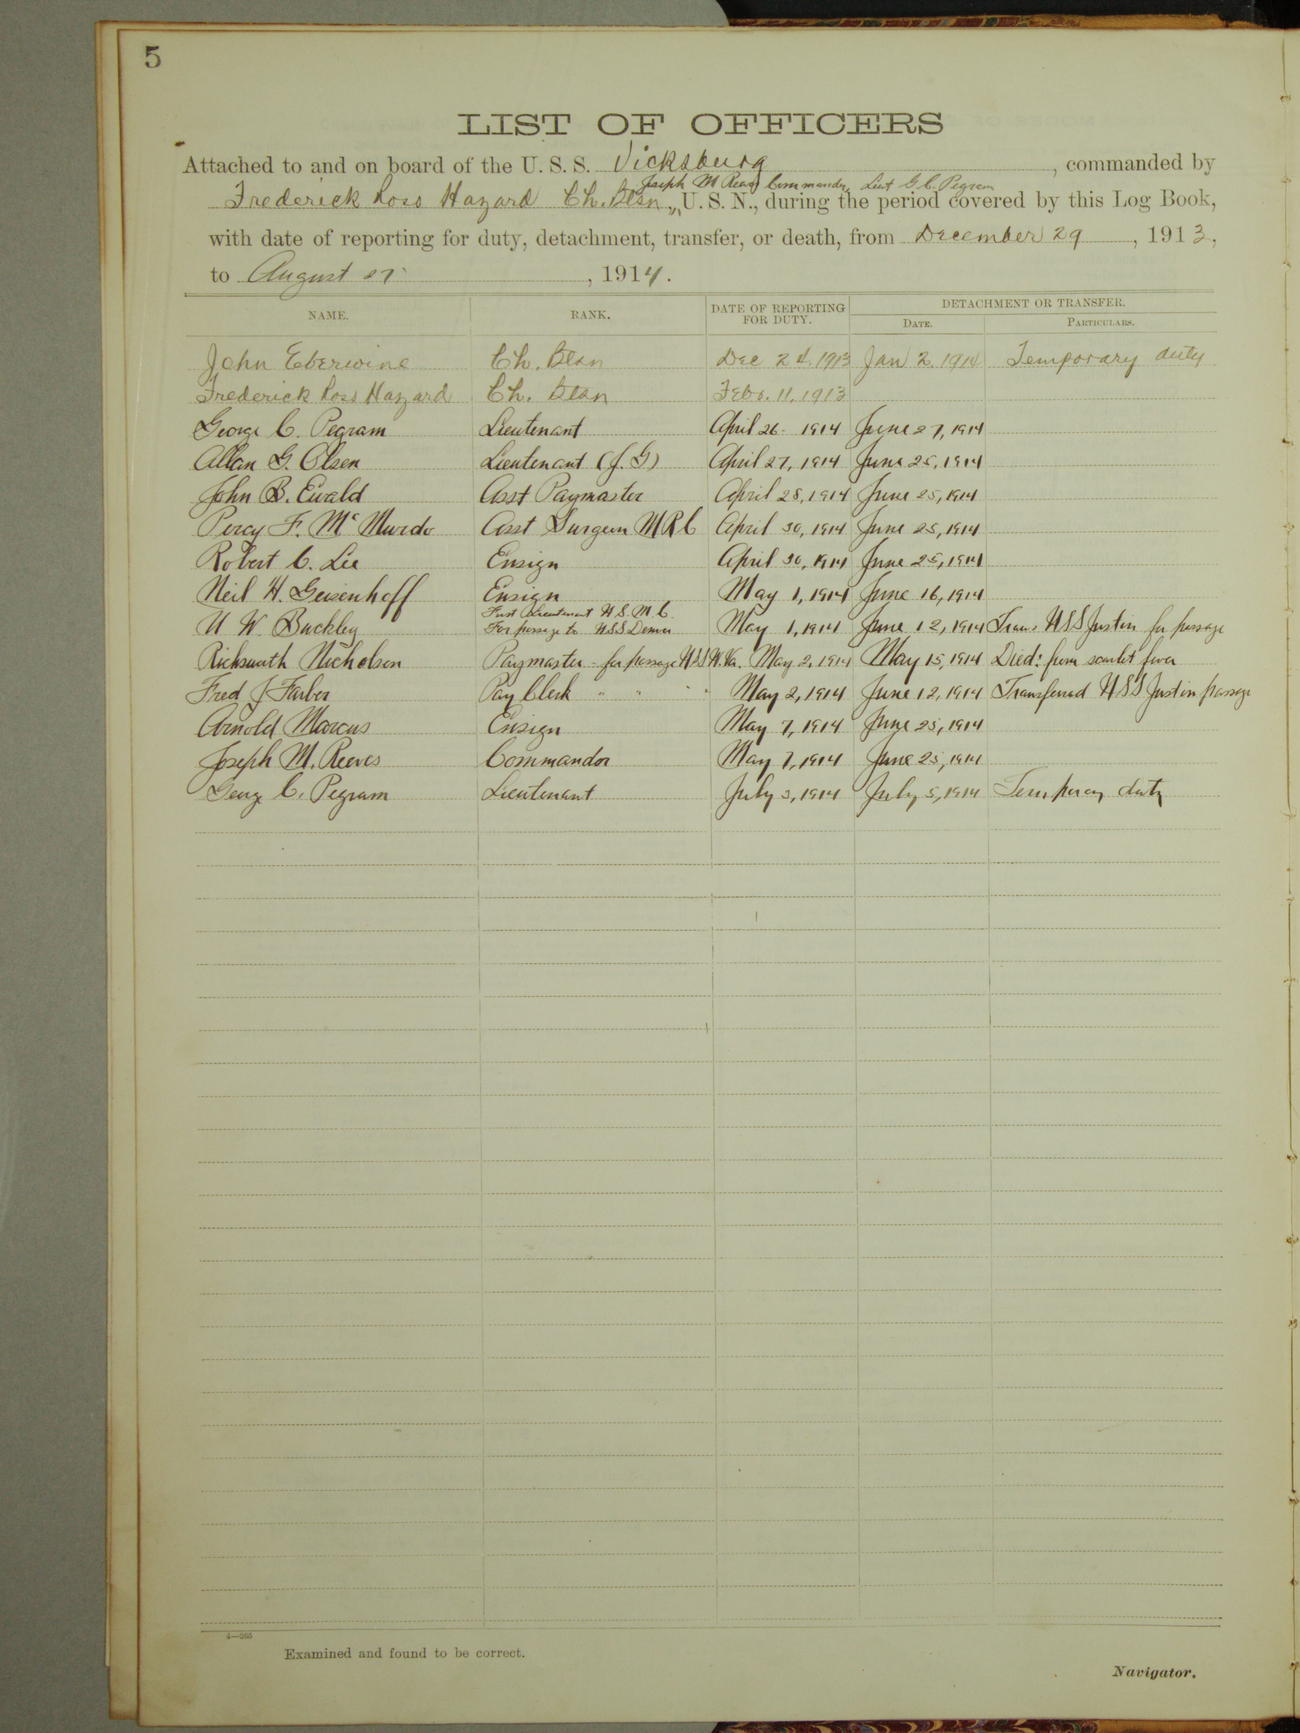 5
LIST OF OFFICERS
Attached to and on board of the U. S. S. Vicksburg, commanded by
Joseph M Reeves Commander, Lieut G. C. Pegram
Frederick Ross Hazard Ch. Btsn, U. S. N., during the period covered by this Log Book,
with date of reporting for duty, detachment, transfer, or death, from December 29, 1913,
to August 27, 1914.
NAME. RANK. DATE OF REPORTING FOR DUTY. DETACHMENT OR TRANSFER.
DATE. PARTICULARS.
John Eberwine Ch. Btsn Dec 24, 1913 Jan 2, 1914 Temporary duty
Frederick Ross Hazard Ch. Btsn Feb. 11, 1913
George C. Pegram Lieutenant April 26 1914 June 27, 1914
Allan G. Olsen Lieutenant (J. G) April 27, 1914 June 25, 1914
John B. Ewald Asst Paymaster April 28, 1914 June 25, 1914
Percy F. McMurdo Asst Surgeon MRC April 30, 1914 June 25, 1914
Robert C. Lee Ensign April 30, 1914 June 25, 1914
Neil H. Geisenhoff Ensign May 1, 1914 June 16, 1914
First Lieutenant U.S.M.C.
W. Buckley For passage to USS Denver May 1, 1914 June 12, 1914 Trans USS Justin for passage
Nicholson Paymaster - for passage USS W.Va. May 2, 1914 May 15, 1914 Died: from scarlet fever
Fred J Farber Pay Clerk " " " " May 2, 1914 June 12, 1914 Transferred USS Justin passage
Arnold Marcus Ensign May 7, 1914 June 25, 1914
Joseph M. Reeves Commander May 7, 1914 June 25, 1914
George C. Pegram Lieutenant July 3, 1914 July 5, 1914 Temporary duty
4—265
Examined and found to be correct.
Navigator.